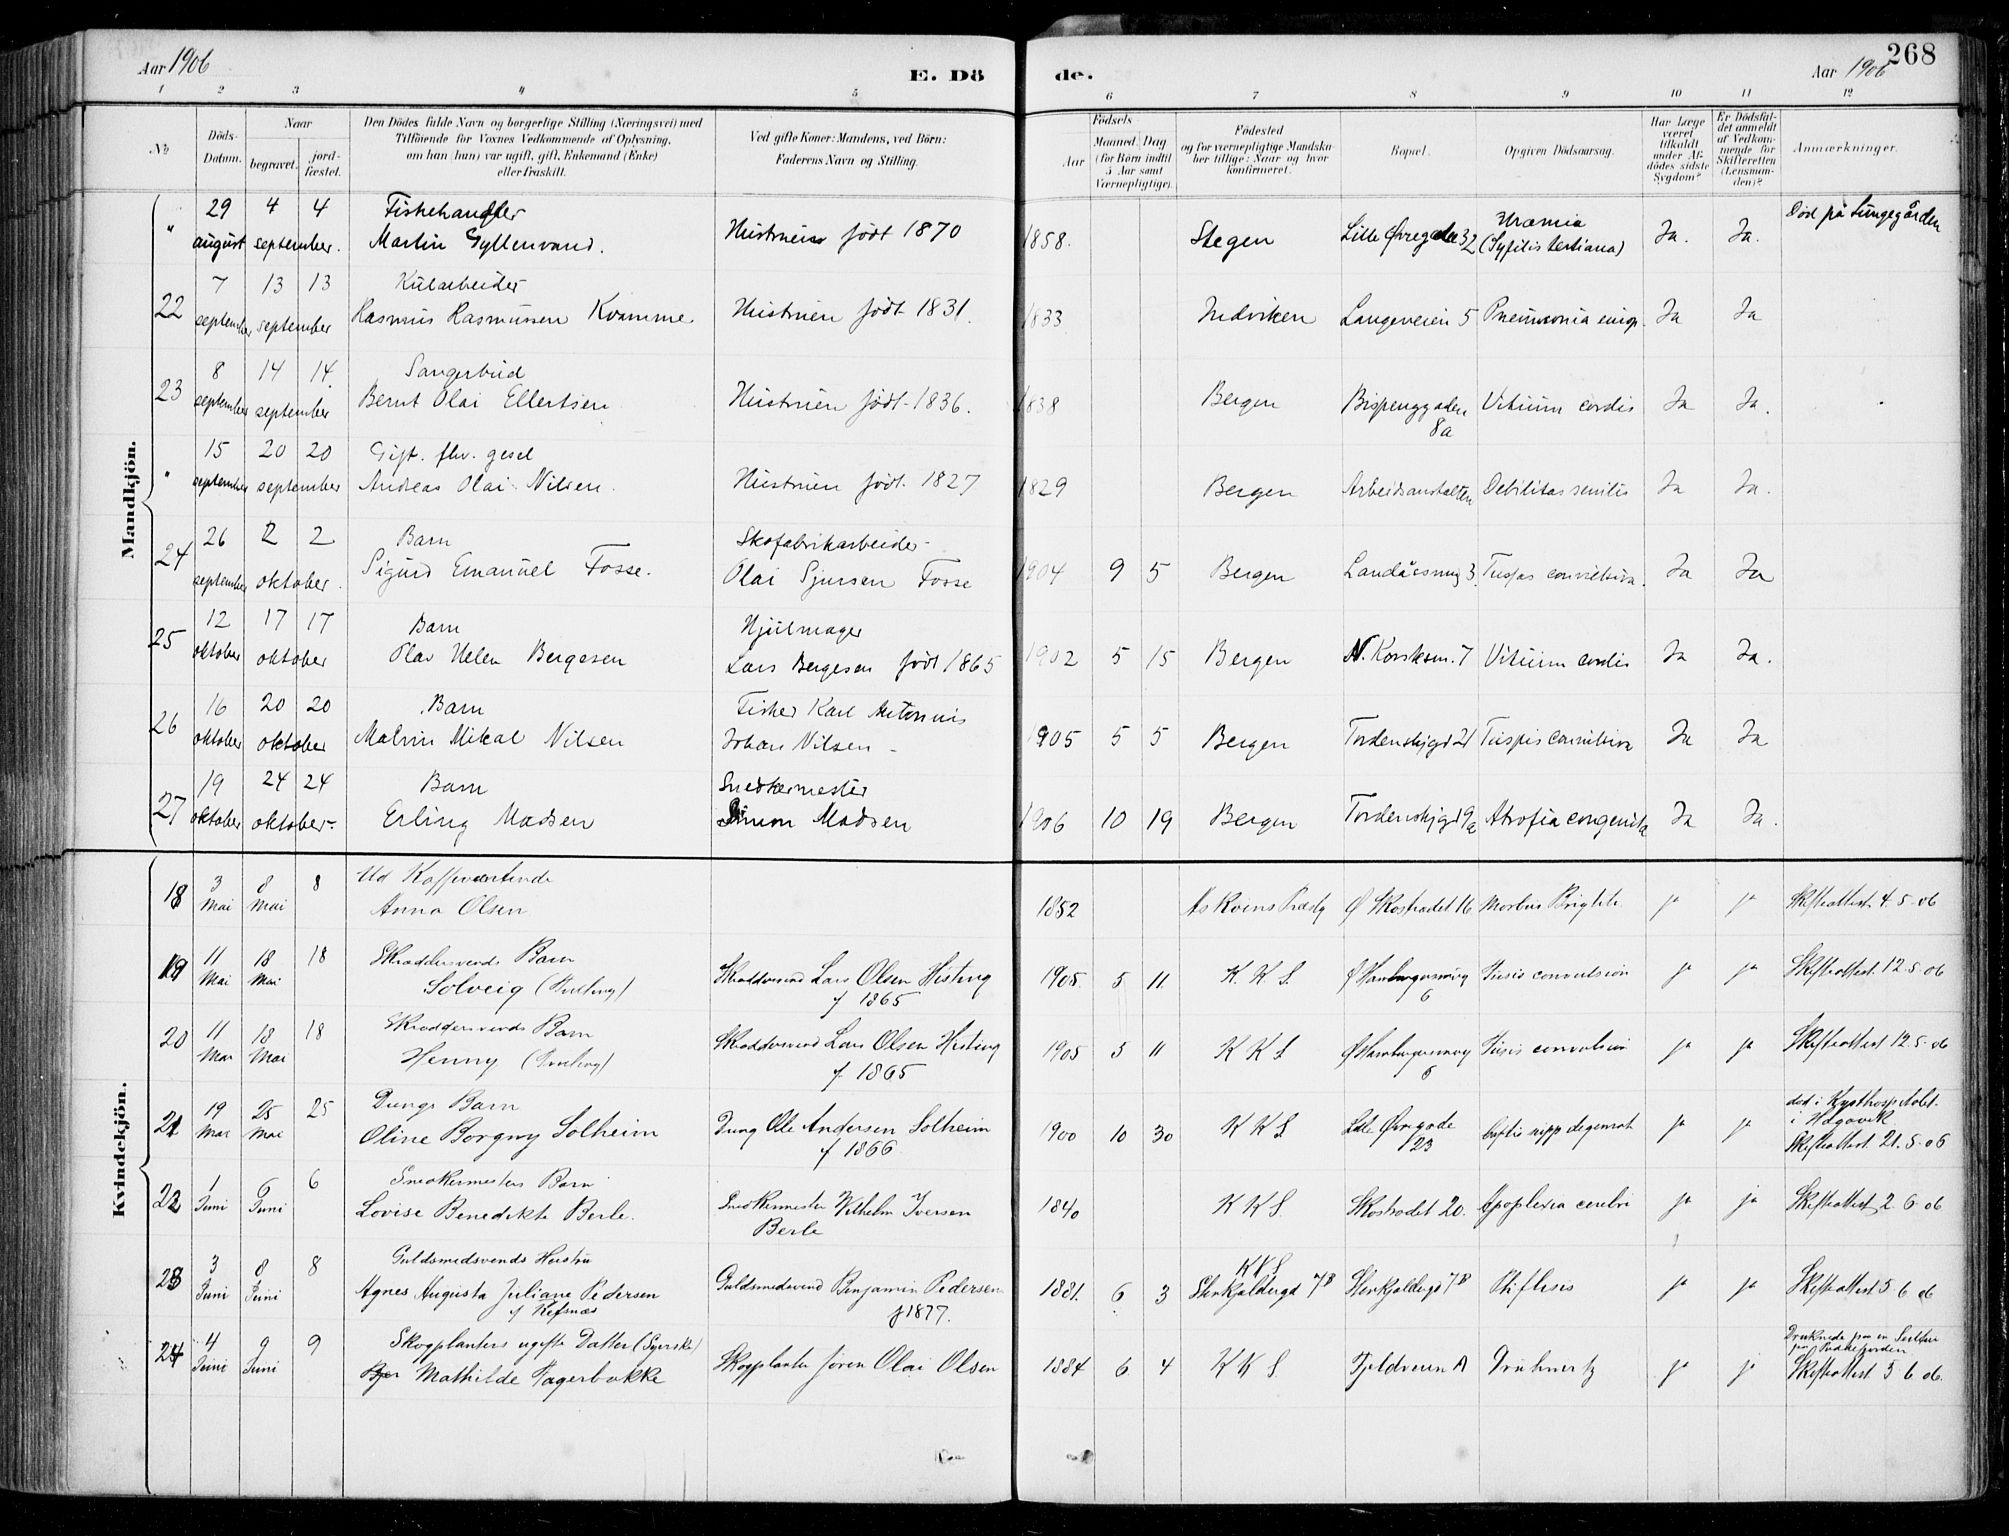 Aar 1906
E. Dö
de.
Aar 1906
268
1 2 3 4 5 6 7 8 9 10 11 12
No
Döds-Datum.
Naar
begravet.
jord-fæstet.
Den Dödes fulde Navn og borgerlige Stilling (Næringsvei) med
Tilföiende for Voxnes Vedkommende af Oplysning,
om han (hun) var ugift, gift, Enkemand (Enke)
eller fraskilt.
Ved gifte Koner: Mandens, ved Börn:
Faderens Navn og Stilling.
Födsels
Aar
Maaned (for Börn indtil 5 Aar samt Værnepligtige).
Dag
Födested
og for værnepligtige Mandskaber tillige: Naar og hvor konfirmeret.
Bopæl.
Opgiven Dödsaarsag.
Har Læge været tilkaldt under Afdödes sidste Sygdom?
Er Dödsfaldet anmeldt af Vedkommende for Skifteretten (Lensmanden)?
Anmærkninger.
Mandkjön.
" 29 august 4 4 september. Fiskehandler Martin Gyllenvand. Hustruen født 1870 1858. Stegen Lille Øvregade 32 Uræmia (Syfilis tertiana) Ja. Ja. Død på Lungegården
22 7 september 13 13 september Kularbeider Rasmus Rasmussen Kvamme Hustruen født 1831. 1833 Indviken Langeveien 5 Pneumonia Ja Ja
23 8 september 14 14 september Sangerbud Bernt Olai Ellertsen Hustruen født 1836. 1838 Bergen Bispenggaden 8a Vitium cordis Ja Ja.
" 15 september 20 20 september Gift. fhv. gesel Andreas Olai Nilsen. Hustruen født 1827 1829 Bergen Arbeidsanstalten Debilitas senilis Ja Ja.
24 26 september 2 2 oktober. Barn Sigurd Emanuel Fosse. Skofabrikarbeider Olai Sjursen Fosse 1904 9 5 Bergen Landåssmug 3. Tussis convulsiva. Ja Ja
25 12 oktober 17 17 oktober Barn Olav Helen Bergesen Hjulmager Lars Bergesen født 1865 1902 5 15 Bergen N. Korsksm. 7 Vitium cordis Ja Ja.
26 16 oktober 20 20 oktober Barn Malvin Mikal Nilsen Fisker Karl Antonius Johan Nilsen 1905 5 5 Bergen Tordenskjgd 21 Tuspis convulsiva Ja Ja
27 19 oktober 24 24 oktober Barn Erling Madsen Snedkermester Simon Madsen 1906 10 19 Bergen Tordenskjgd 9a Atrofia congenita Ja Ja.
Kvindekjön.
18 3 Mai 8 Mai 8 Ud Kaffeværtinde Anna Olsen 1852 Askvins Præstg Ø Skostrædet 16 Morbus Brightii ja ja Skifteattest 4. 5. 06
19 11 Mai 18 Mai 18 Skræddersvends Barn Solveig (Tvilling) Skræddersvend Lars Olsen Histing f 1865 1905. 5 11. K. K. S. Ø Hamburgersmug 6 Tussis convulsiva ja ja Skifteattest 12. 5. 06
20 11 Mai 18 Mai 18 Skræddersvends Barn Henny (Tvilling) Skræddersvend Lars Olsen Histing f. 1865 1905 5 11 K K S Ø Hamburgersmug 6 Tussis convulsiva ja ja Skifteattest 12. 5. 06
21 19 Mai 25 Mai 25 Dungs Barn Oline Borgny Solheim Dung Ole Andersen Solheim f 1866 1900 10 30 K K S Lille Øvregade 23 ja ja død i Kysthospitalet i Hagavik Skifteattest 21. 5. 06
22 1 Juni 6 Juni 6 Snedkermesters Barn Lovise Benedikte Berle. Snedkermester Vilhelm Iversen Berle 1840 K K S. Skostrædet 20. Apoplexia cerebri ja ja Skifteattest 2. 6. 06
23 3 Juni 8 Juni 8 Guldsmedsvends Hustru Agnes Augusta Juliane Pedersen f Refsnæs Guldsmedsvend Benjamin Pedersen f 1877. 1881. 6 3 K K S Stenkjeldergd 7B Stenkjeldergd 7B Phtisis ja ja Skifteattest 5. 6. 06
24 4 Juni 9 Juni 9 Skogplanters ugifte Datter (Syerske) Mathilde Fagerbakke Skogplanter Jøren Olai Olsen 1884 6 4 K K S Fjeldveien A Druknet ja ja Druknede paa en Seiltur paa Puddefjorden Skifteattest 5. 6. 06.